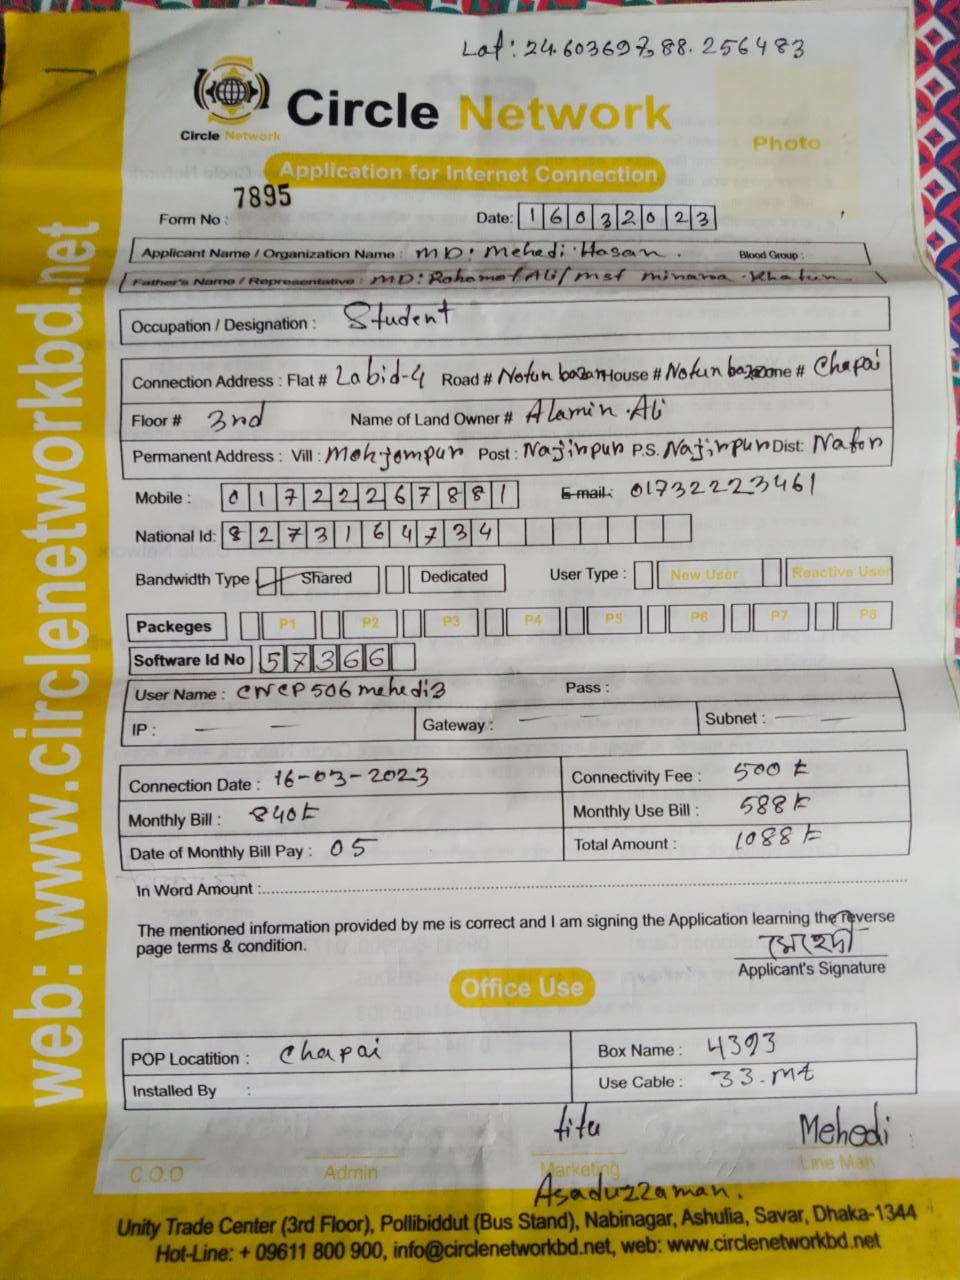 Lat: 24.603697,88.256483
Circle Network
Circle Network
Photo
Application for Internet Connection
Form No : 7895 Date: 16032023
Applicant Name / Organization Name : MD: Mehedi Hasan. Blood Group :
Father's Name / Representative : MD: Rahamot Ali/ Mst Minara Khatun
Occupation / Designation : Student
Connection Address : Flat # Labid-4 Road # Notun bazar House # Notun bazar Zone # Chapai
Floor # 3rd Name of Land Owner # Alamin Ali
Permanent Address : Vill : Mohjompur Post : Najirpur P.S. Najirpur Dist: Nator
Mobile : 01722267881 E-mail: 01732223461
National Id: 8273164734
Bandwidth Type Shared Dedicated User Type : New User Reactive User
Packeges P1 P2 P3 P4 P5 P6 P7 P8
Software Id No 57366
User Name : CNCP506mehedi3 Pass :
IP : — — Gateway : — — Subnet : — —
Connection Date : 16-03-2023 Connectivity Fee : 500 t
Monthly Bill : 840t Monthly Use Bill : 588t
Date of Monthly Bill Pay : 05 Total Amount : 1088t
In Word Amount :
The mentioned information provided by me is correct and I am signing the Application learning the reverse
page terms & condition.
মেহেদী
Applicant's Signature
Office Use
POP Locatition : Chapai Box Name : 4393
Installed By : Use Cable : 33.mt
titu Mehedi
C.O.O Admin Marketing Line Man
Asaduzzaman.
Unity Trade Center (3rd Floor), Pollibiddut (Bus Stand), Nabinagar, Ashulia, Savar, Dhaka-1344
Hot-Line: + 09611 800 900, info@circlenetworkbd.net, web: www.circlenetworkbd.net
web: www.circlenetworkbd.net